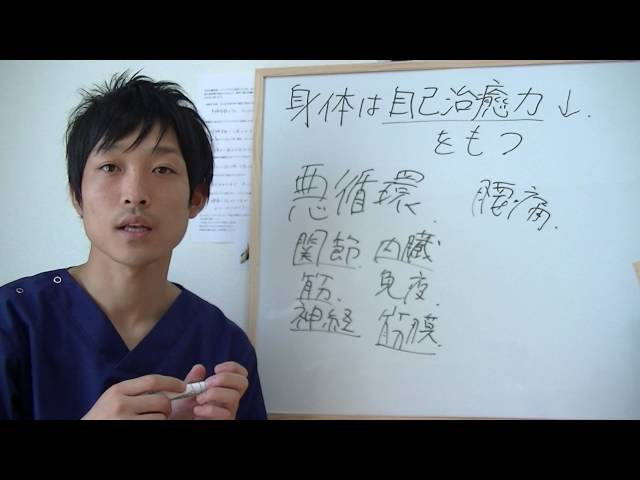 身体は自己治癒力↓.
をもつ
悪循環. 腰痛.
関節 内臓
筋. 免疫.
神経 筋膜.